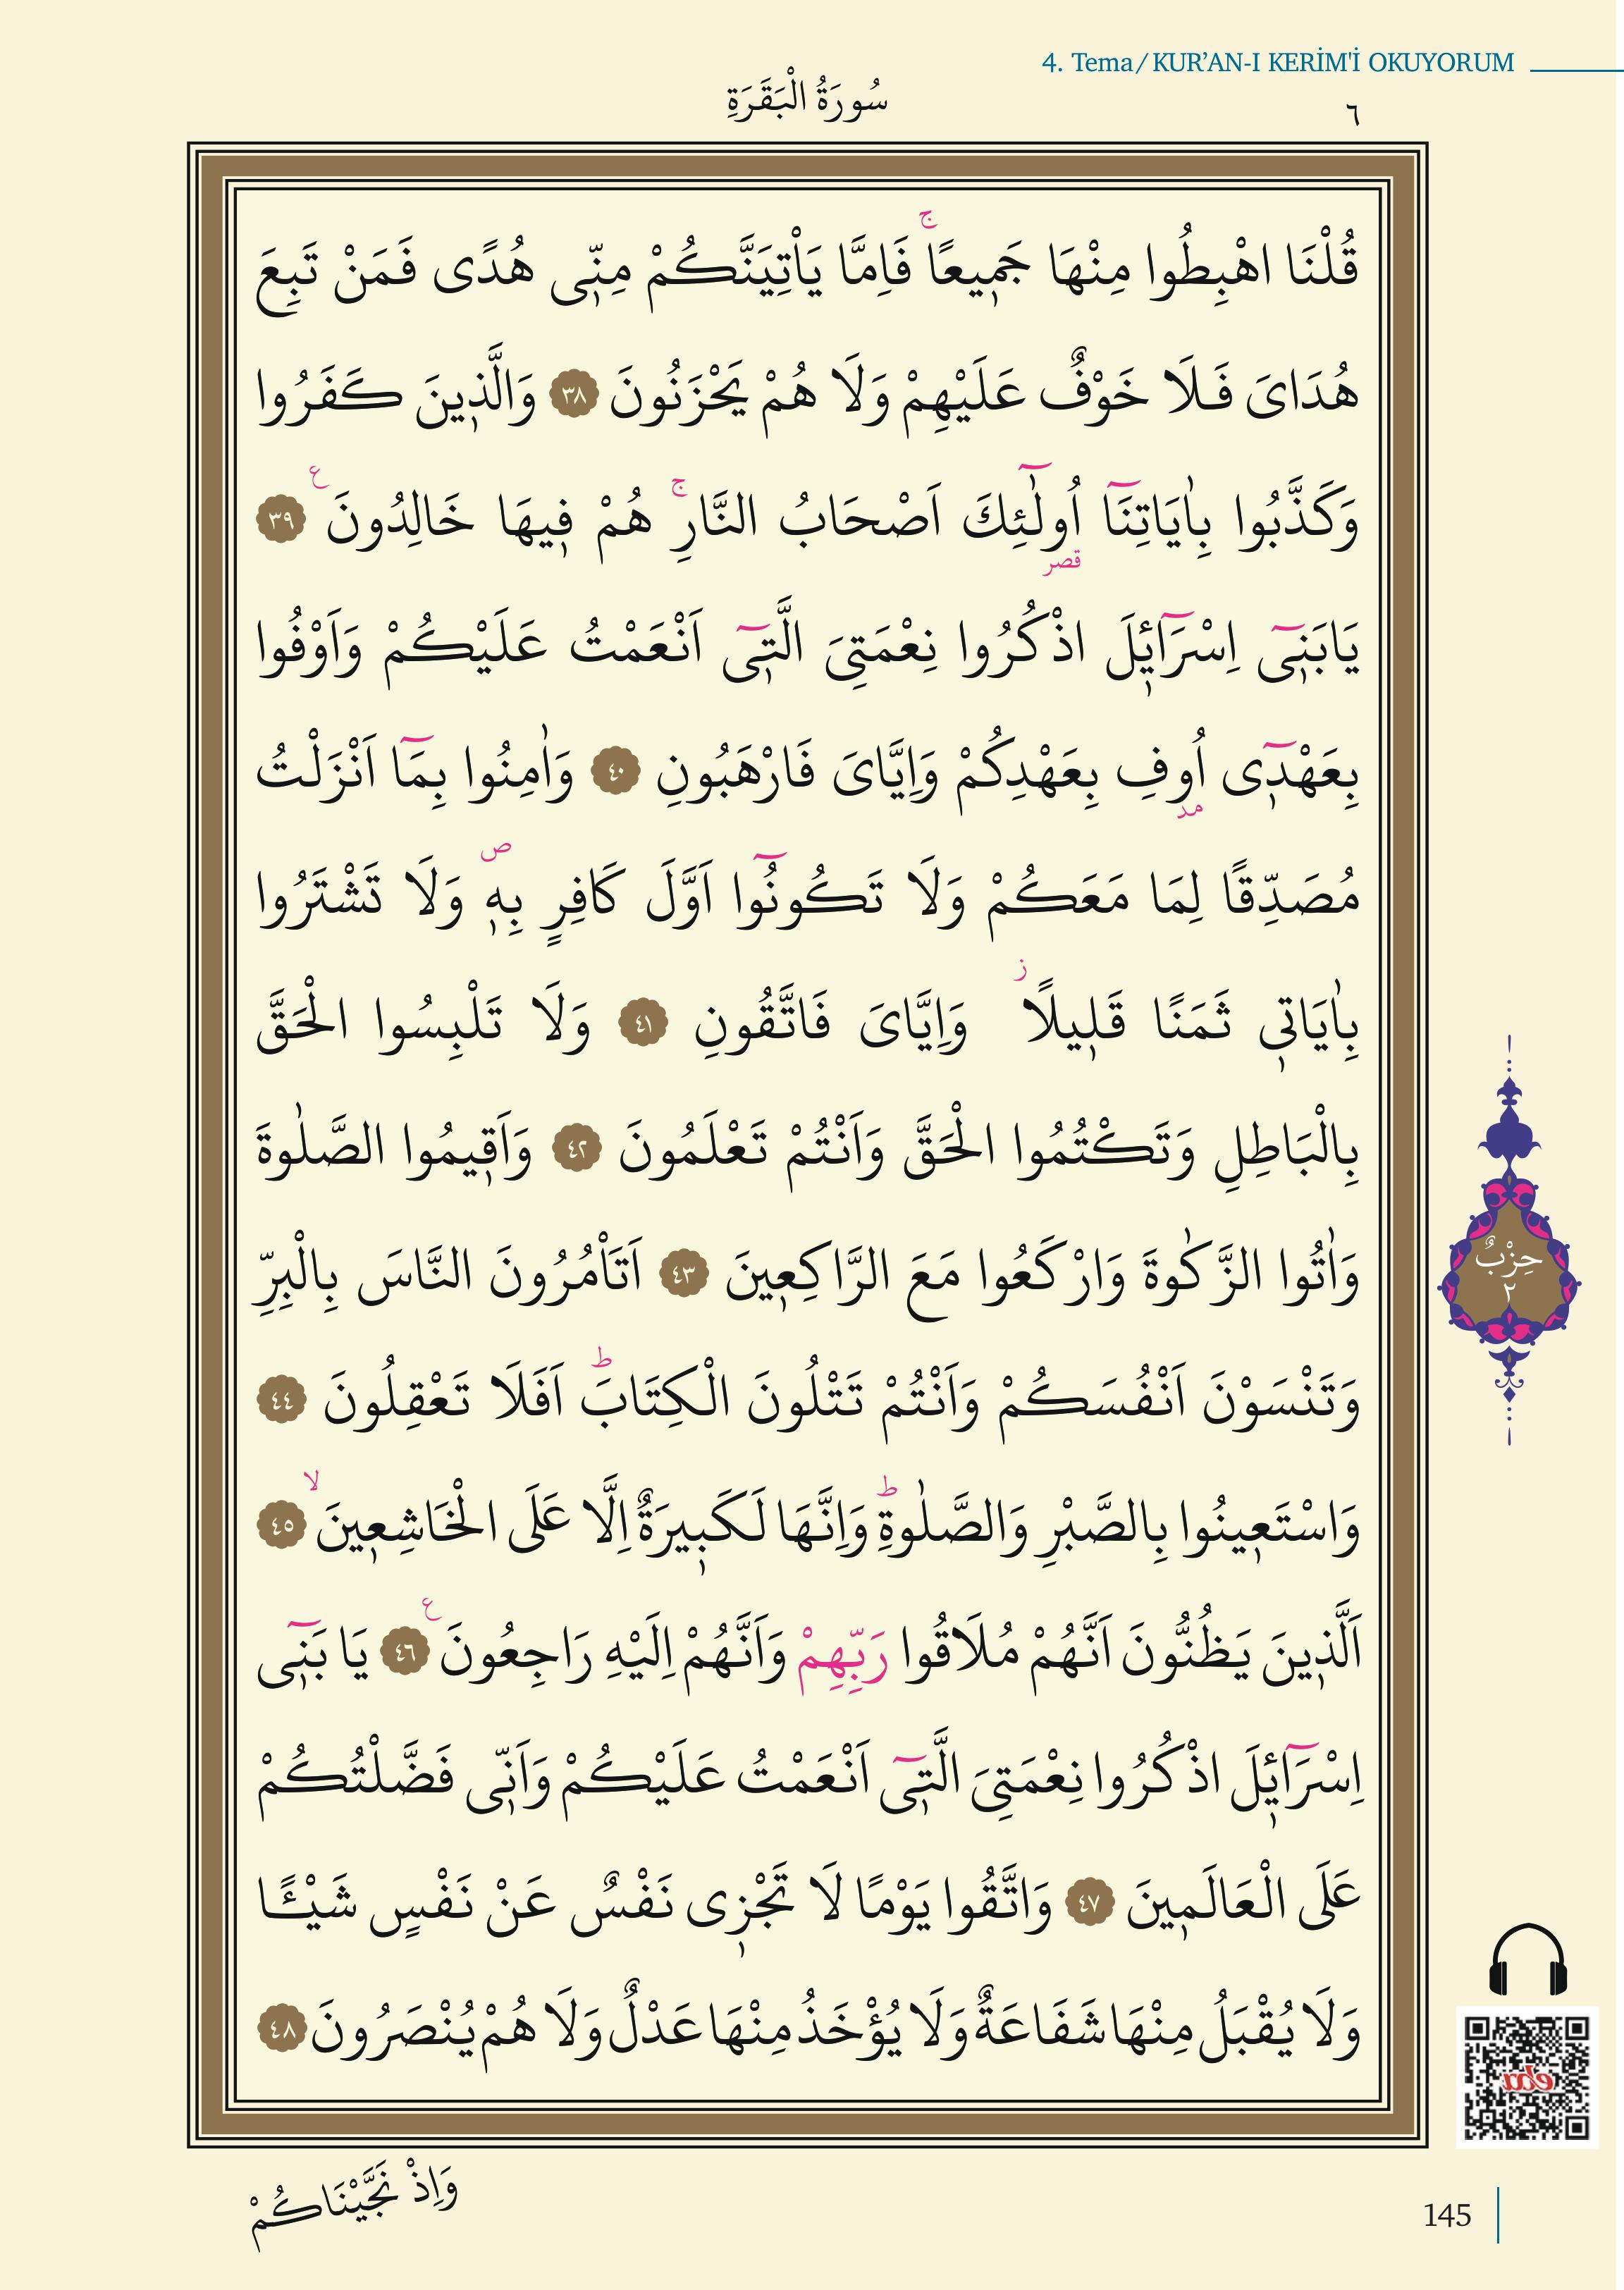 4. Tema/KUR’AN-I KERİM'İ OKUYORUM
سُورَةُ الْبَقَرَةِ
٦
قُلْنَا اهْبِطُوا مِنْهَا جَمٖيعًاۚ فَاِمَّا يَاْتِيَنَّكُمْ مِنّٖى هُدًى فَمَنْ تَبِعَ
هُدَاىَ فَلَا خَوْفٌ عَلَيْهِمْ وَلَا هُمْ يَحْزَنُونَ ٣٨ وَالَّذٖينَ كَفَرُوا
وَكَذَّبُوا بِاٰيَاتِنَٓا اُو۬لٰٓئِكَ اَصْحَابُ النَّارِۚ هُمْ فٖيهَا خَالِدُونَ ع ٣٩
قصر
يَابَنٖٓى اِسْرَٓائٖلَ اذْكُرُوا نِعْمَتِىَ الَّتٖٓى اَنْعَمْتُ عَلَيْكُمْ وَاَوْفُوا
بِعَهْدٖٓى اُوفِ بِعَهْدِكُمْ وَاِيَّاىَ فَارْهَبُونِ ٤٠ وَاٰمِنُوا بِمَٓا اَنْزَلْتُ
مد
مُصَدِّقًا لِمَا مَعَكُمْ وَلَا تَكُونُٓوا اَوَّلَ كَافِرٍ بِهٖ ص وَلَا تَشْتَرُوا
بِاٰيَاتٖى ثَمَنًا قَلٖيلًا ز وَاِيَّاىَ فَاتَّقُونِ ٤١ وَلَا تَلْبِسُوا الْحَقَّ
بِالْبَاطِلِ وَتَكْتُمُوا الْحَقَّ وَاَنْتُمْ تَعْلَمُونَ ٤٢ وَاَقٖيمُوا الصَّلٰوةَ
وَاٰتُوا الزَّكٰوةَ وَارْكَعُوا مَعَ الرَّاكِعٖينَ ٤٣ اَتَاْمُرُونَ النَّاسَ بِالْبِرِّ
حِزْبٌ
٢
وَتَنْسَوْنَ اَنْفُسَكُمْ وَاَنْتُمْ تَتْلُونَ الْكِتَابَؕ اَفَلَا تَعْقِلُونَ ٤٤
وَاسْتَعٖينُوا بِالصَّبْرِ وَالصَّلٰوةِؕ وَاِنَّهَا لَكَبٖيرَةٌ اِلَّا عَلَى الْخَاشِعٖينَۙ ٤٥
اَلَّذٖينَ يَظُنُّونَ اَنَّهُمْ مُلَاقُوا رَبِّهِمْ وَاَنَّهُمْ اِلَيْهِ رَاجِعُونَ ع ٤٦ يَا بَنٖٓى
اِسْرَٓائٖلَ اذْكُرُوا نِعْمَتِىَ الَّتٖٓى اَنْعَمْتُ عَلَيْكُمْ وَاَنّٖى فَضَّلْتُكُمْ
عَلَى الْعَالَمٖينَ ٤٧ وَاتَّقُوا يَوْمًا لَا تَجْزٖى نَفْسٌ عَنْ نَفْسٍ شَيْـًٔا
وَلَا يُقْبَلُ مِنْهَا شَفَاعَةٌ وَلَا يُؤْخَذُ مِنْهَا عَدْلٌ وَلَا هُمْ يُنْصَرُونَ ٤٨
eba
وَاِذْ نَجَّيْنَاكُمْ
145